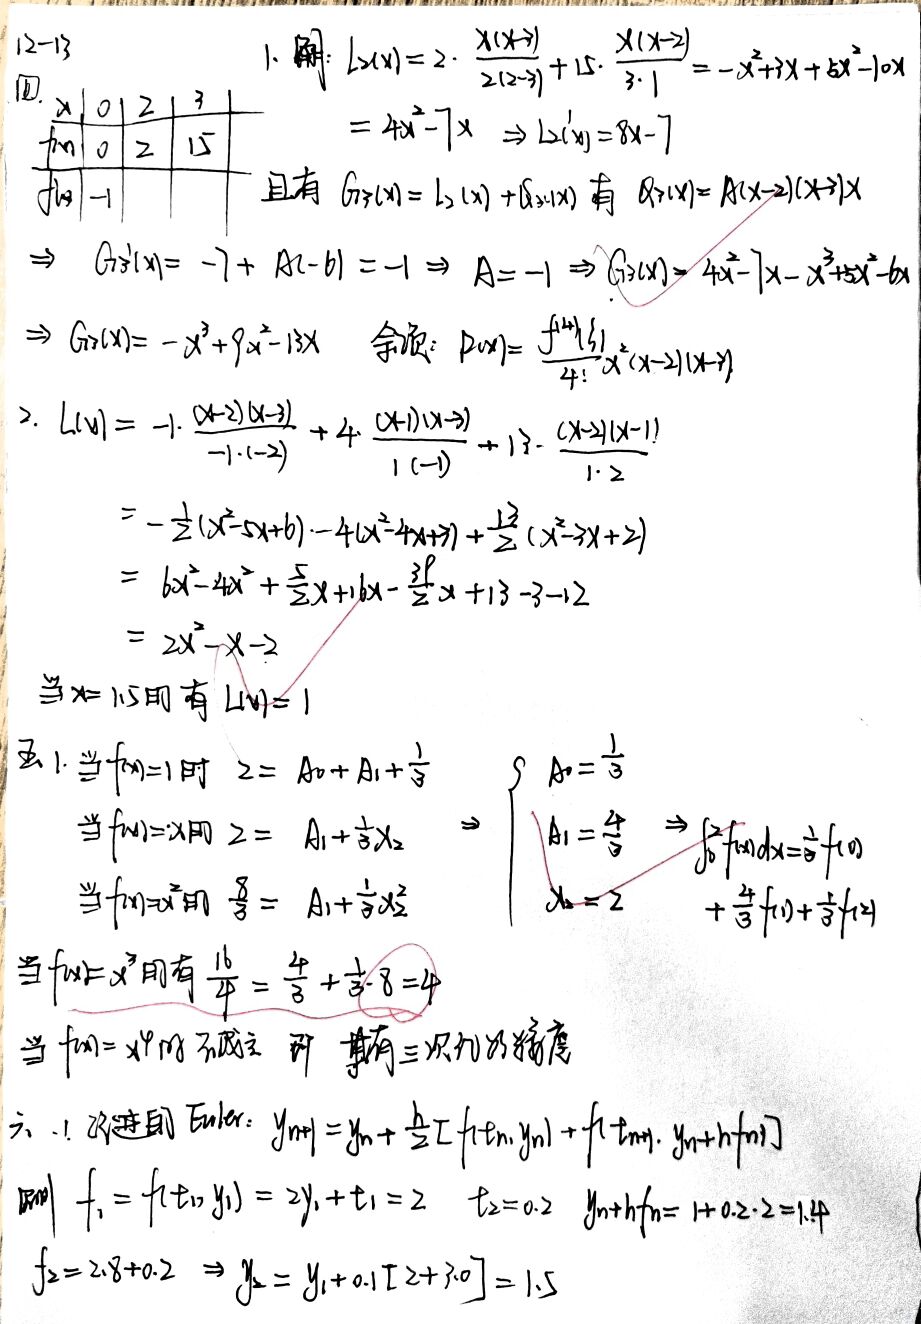 12-13
四.
x | 0 | 2 | 3
f(x) | 0 | 2 | 15
f'(x) | -1
1. 解: L₂(x) = 2· x(x-3)/2(2-3) + 15· x(x-2)/3·1 = -x²+3x+5x²-10x
= 4x²-7x ⇒ L₂'(x) = 8x-7
且有 G₃(x) = L₂(x) + Q₃(x) 有 Q₃(x) = A(x-2)(x-3)x
⇒ G₃'(x) = -7 + A(-6) = -1 ⇒ A = -1 ⇒ G₃(x) = 4x²-7x-x³+5x²-6x
⇒ G₃(x) = -x³+9x²-13x 余项: R(x) = f⁽⁴⁾(ξ)/4! x²(x-2)(x-3)
2. L(x) = -1· (x-2)(x-3)/-1·(-2) + 4· (x-1)(x-3)/1(-1) + 13· (x-2)(x-1)/1·2
= -1/2(x²-5x+6)·-4(x²-4x+3) + 13/2(x²-3x+2)
= 6x²-4x² + 5/2x+16x - 39/2x + 13-3-12
= 2x²-x-2
当x=1.5时 有 L(x) = 1
五. 1. 当f(x)=1时 2 = A₀+A₁+1/3
当f(x)=x时 2 = A₁+1/3x₂
当f(x)=x²时 8/3 = A₁+1/3x₂²
⇒ { A₀ = 1/3
A₁ = 4/3
x₂ = 2
⇒ ∫₀²f(x)dx = 1/3f(0)
+ 4/3f(1)+1/3f(2)
当f(x)=x³时有 16/4 = 4/3 + 1/3·8 = 4
当 f(x) = x⁴时 不成立 即 其有三次代数精度
六. 1. 改进的 Euler: yₙ₊₁ = yₙ + h/2[f(tₙ, yₙ) + f(tₙ₊₁, yₙ+hfₙ)]
即 f₁ = f(t₁, y₁) = 2y₁+t₁ = 2 t₂=0.2 yₙ+hfₙ = 1+0.2·2 = 1.4
f₂ = 2.8+0.2 ⇒ y₂ = y₁+0.1[2+3.0] = 1.5